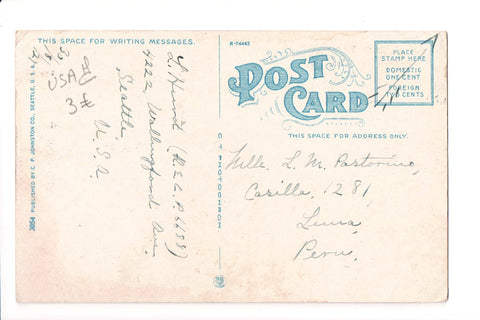 THIS SPACE FOR WRITING MESSAGES.
R-74443
POST
CARD
PLACE
STAMP HERE
DOMESTIC
ONE CENT
FOREIGN
TWO CENTS
THIS SPACE FOR ADDRESS ONLY.
USA
3¢
4222 Wallingford Ave.
Seattle
U.S.A.
Mlle. L. M. Pastorino,
Casilla, 1281,
Lima,
Peru.
3054 PUBLISHED BY C. P. JOHNSTON CO., SEATTLE, U. S. A.